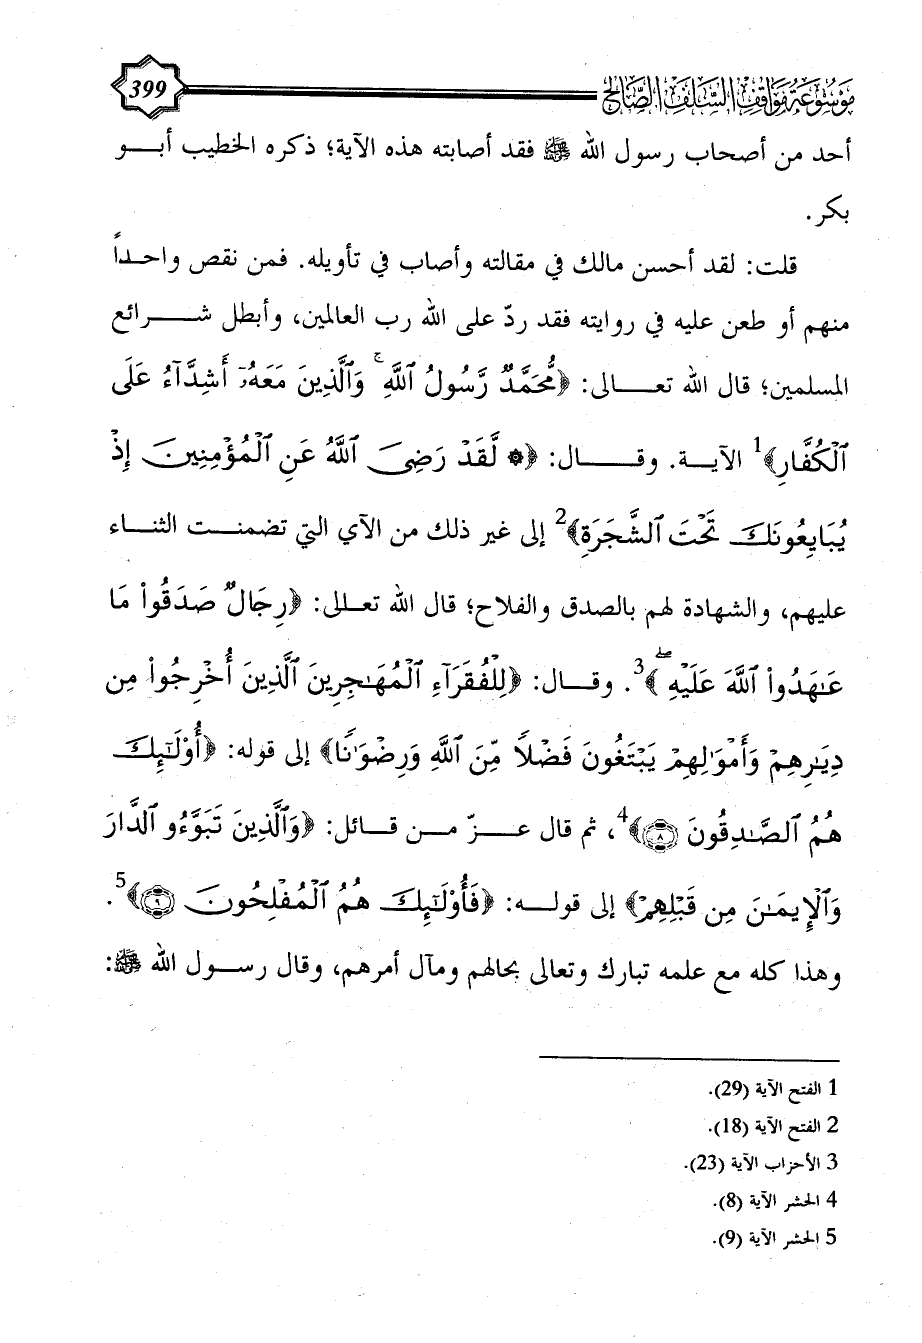 موسوعة مواقف السلف الصالح
399
أحد من أصحاب رسول الله ﷺ فقد أصابته هذه الآية؛ ذكره الخطيب أبــو
بكر.
قلت: لقد أحسن مالك في مقالته وأصاب في تأويله. فمن نقص واحـداً
منهم أو طعن عليه في روايته فقد ردّ على الله رب العالمين، وأبطل شـــرائع
المسلمين؛ قال الله تعـــالى: ﴿مُّحَمَّدٌ رَّسُولُ ٱللَّهِ ۚ وَٱلَّذِينَ مَعَهُۥٓ أَشِدَّآءُ عَلَى
ٱلْكُفَّارِ﴾1 الآيـة. وقـــال: ﴿۞ لَّقَدْ رَضِىَ ٱللَّهُ عَنِ ٱلْمُؤْمِنِينَ إِذْ
يُبَايِعُونَكَ تَحْتَ ٱلشَّجَرَةِ﴾2 إلى غير ذلك من الآي التي تضمنـت الثنـاء
عليهم، والشهادة لهم بالصدق والفلاح؛ قال الله تعـالى: ﴿رِجَالٌ صَدَقُوا۟ مَا
عَـٰهَدُوا۟ ٱللَّهَ عَلَيْهِ ۖ﴾3. وقـال: ﴿لِلْفُقَرَآءِ ٱلْمُهَـٰجِرِينَ ٱلَّذِينَ أُخْرِجُوا۟ مِن
دِيَـٰرِهِمْ وَأَمْوَٰلِهِمْ يَبْتَغُونَ فَضْلًا مِّنَ ٱللَّهِ وَرِضْوَٰنًا﴾ إلى قوله: ﴿أُو۟لَـٰٓئِكَ
هُمُ ٱلصَّـٰدِقُونَ ٨﴾4، ثم قال عـزّ مـن قـائل: ﴿وَٱلَّذِينَ تَبَوَّءُو ٱلدَّارَ
وَٱلْإِيمَـٰنَ مِن قَبْلِهِمْ﴾ إلى قولـه: ﴿فَأُو۟لَـٰٓئِكَ هُمُ ٱلْمُفْلِحُونَ ٩﴾5.
وهذا كله مع علمه تبارك وتعالى بحالهم ومآل أمرهم، وقال رسـول الله ﷺ:
1 الفتح الآية (29).
2 الفتح الآية (18).
3 الأحزاب الآية (23).
4 الحشر الآية (8).
5 الحشر الآية (9).